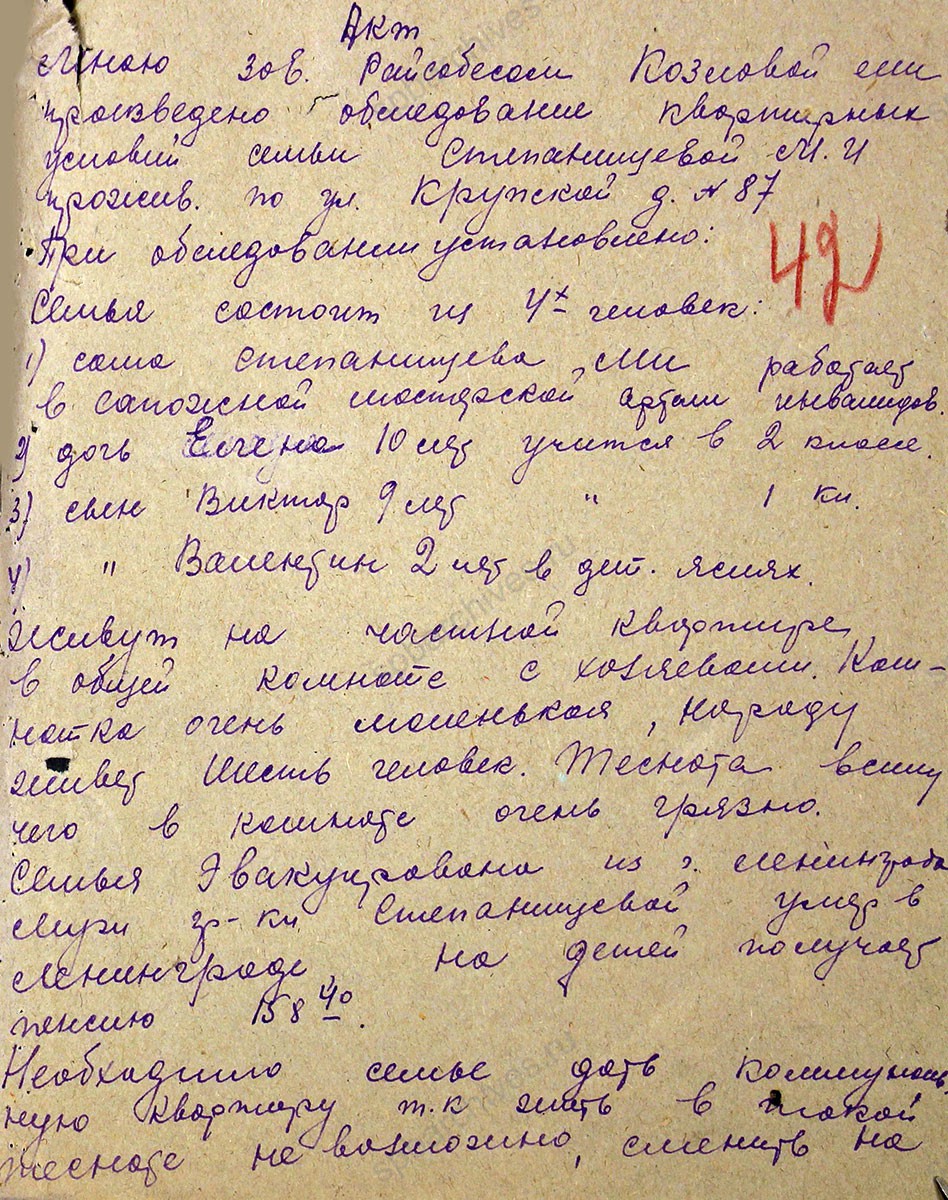 Акт
Мною зав. Райсобесом Козловой
произведено обследование квартирных
условий семьи Степанищевой М. И
прожив. по ул. Кружской д. № 87
При обследовании установлено:
42
Семья состоит из 4х человек:
1) сама Степанищева М И работает
в сапожной мастерской артели инвалидов.
2) дочь 10 лет учится в 2 классе.
3) сын Виктор 9 лет " 1 кл.
4) " Валентин 2 лет в дет. яслях.
Живут на частной квартире
в общей комнате с хозяевами. Ком-
натка очень маленькая, народу
живет шесть человек. Теснота всилу
чего в комнате очень грязно.
Семья эвакуирована из г. Ленинграда
муж гр-ки Степанищевой умер в
Ленинграде, на детей получает
пенсию 158 40.
Необходимо семье дать коммуналь
ную квартиру т.к жить в такой
тесноте не возможно, сменить на